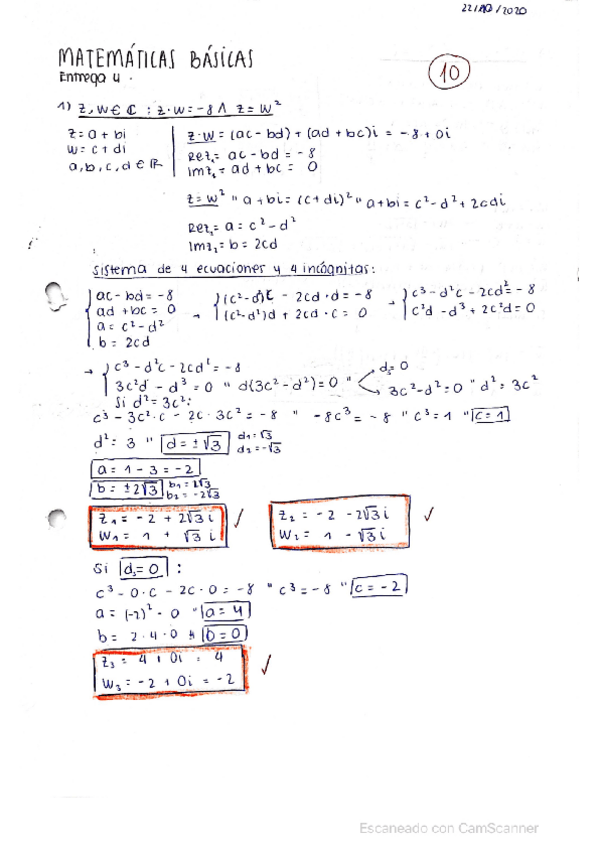 22/10/2020
MATEMÁTICAS BÁSICAS
Entrega 4.
10
1) z, w ∈ ℂ : z·w = -8 ∧ z = w²
z = a + bi
w = c + di
a, b, c, d ∈ ℝ
z·w = (ac - bd) + (ad + bc)i = -8 + 0i
Rez₁ = ac - bd = -8
Imz₁ = ad + bc = 0
z = w² " a + bi = (c + di)² " a + bi = c² - d² + 2cdi
Rez₂ = a = c² - d²
Imz₂ = b = 2cd
Sistema de 4 ecuaciones y 4 incógnitas:
ac - bd = -8
ad + bc = 0
a = c² - d²
b = 2cd
→ (c² - d²)c - 2cd · d = -8
(c² - d²)d + 2cd · c = 0
→ c³ - d²c - 2cd² = -8
c²d - d³ + 2c²d = 0
→ c³ - d²c - 2cd² = -8
3c²d - d³ = 0 " d(3c² - d²) = 0 "
d₃ = 0
3c² - d² = 0 " d² = 3c²
Si d² = 3c²:
c³ - 3c²·c - 2c·3c² = -8 " -8c³ = -8 " c³ = 1 " c = 1
d² = 3 " d = ±√3 d₁ = √3
d₂ = -√3
a = 1 - 3 = -2
b = ±2√3 b₁ = 2√3
b₂ = -2√3
z₁ = -2 + 2√3 i ✓
w₁ = 1 + √3 i
z₂ = -2 - 2√3 i ✓
w₂ = 1 - √3 i
Si d₃ = 0 :
c³ - 0·c - 2c·0 = -8 " c³ = -8 " c = -2
a = (-2)² - 0 " a = 4
b = 2·4·0 " b = 0
z₃ = 4 + 0i = 4 ✓
w₃ = -2 + 0i = -2
Escaneado con CamScanner